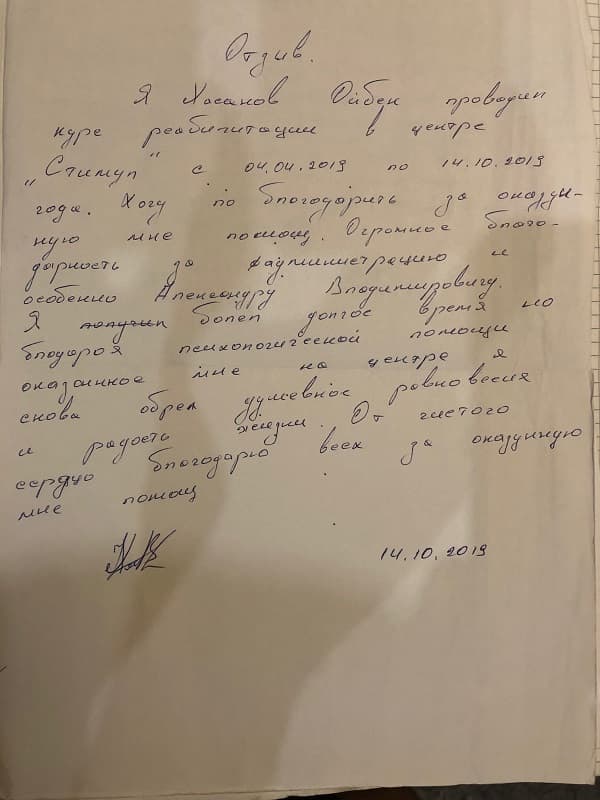 Отзив.
Я Хасанов Ойбек проводил
курс реабилитации в центре
„Стимул" с 04.04.2019 по 14.10.2019
года. Хочу по благодарить за оказун-
ную мне помощ. Огромное благо-
дарность за аудминистрацию и
особенно Александру Владимировичу.
Я получил болел долгое время но
блодароя психологической помощи
оказанное мне на центре я
снова обрел душевное равновесия
и радость жизни. От чистого
сердцо благодарю всех за оказунную
мне помощ
14.10.2019